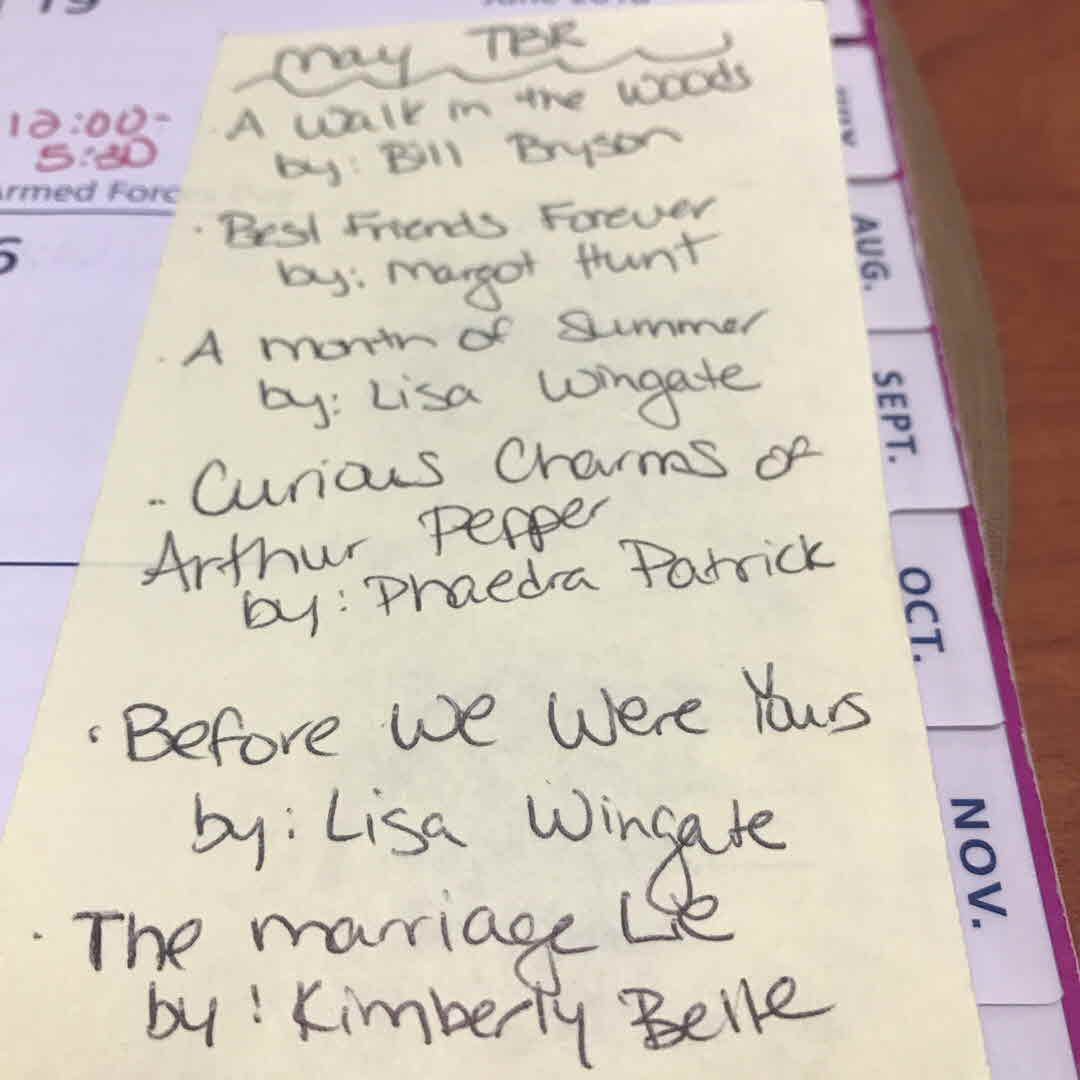 19
12:00-
5:30
Armed Forc
May TBR
· A Walk in the Woods
by: Bill Bryson
· Best Friends Forever
by: Margot Hunt
· A month of Summer
by: Lisa Wingate
- Curious Charms of
Arthur Pepper
by: Phaedra Patrick
· Before We Were Yours
by: Lisa Wingate
· The marriage Lie
by: Kimberly Belle
AUG.
SEPT.
OCT.
NOV.